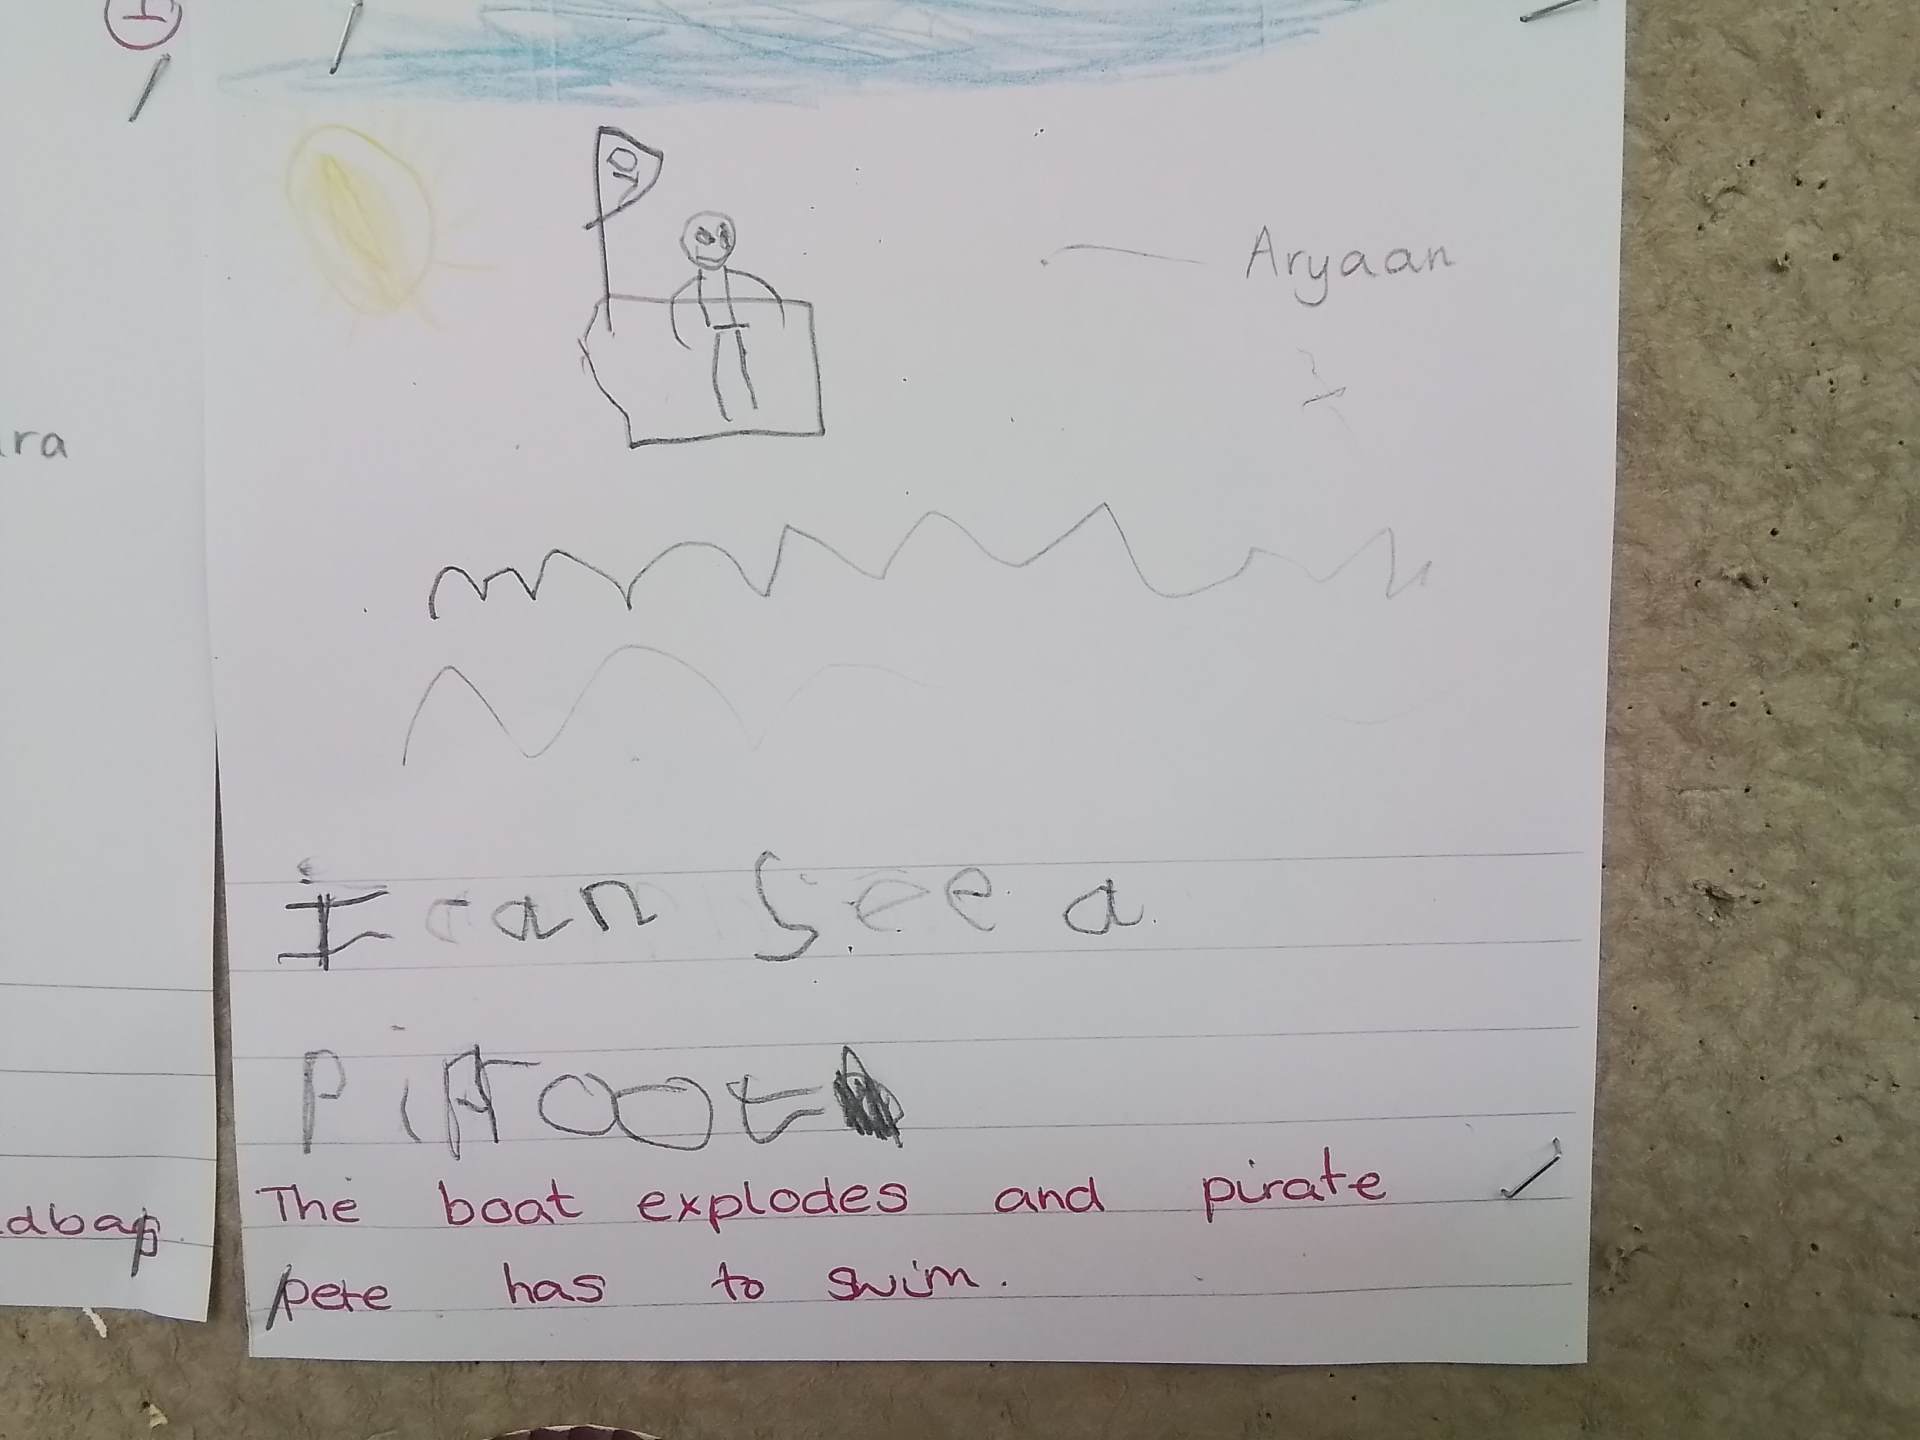 Aryaan
ra
I can see a
The boat explodes and pirate
dbag
pete has to swim.